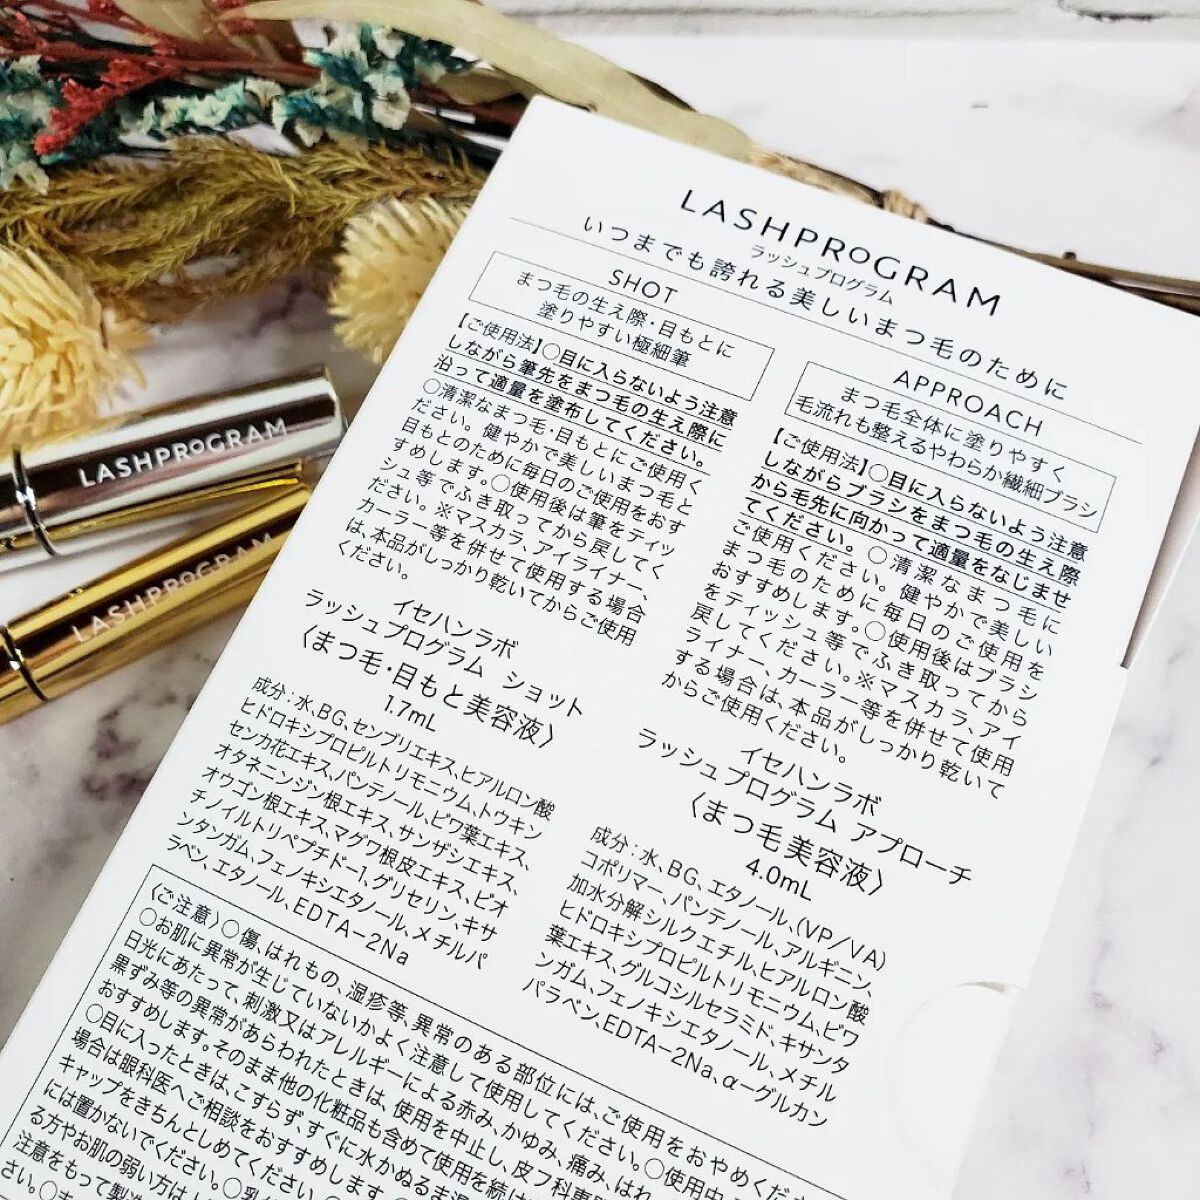 LASHPROGRAM
ラッシュプログラム
いつまでも誇れる美しいまつ毛のために
SHOT
まつ毛の生え際・目もとに
塗りやすい極細筆
【ご使用法】○目に入らないよう注意
しながら筆先をまつ毛の生え際に
沿って適量を塗布してください。
○清潔なまつ毛・目もとにご使用く
ださい。健やかで美しいまつ毛と
目もとのために毎日のご使用をおす
すめします。○使用後は筆をティッ
シュ等でふき取ってから戻してく
ださい。※マスカラ、アイライナー、
カーラー等を併せて使用する場合
は、本品がしっかり乾いてからご使用
ください。
イセハンラボ
ラッシュプログラム ショット
〈まつ毛・目もと美容液〉
1.7mL
成分：水、BG、センブリエキス、ヒアルロン酸
ヒドロキシプロピルトリモニウム、トウキン
センカ花エキス、パンテノール、ビワ葉エキス、
オタネニンジン根エキス、サンザシエキス、
オウゴン根エキス、マグワ根皮エキス、ビオ
チノイルトリペプチド-1、グリセリン、キサ
ンタンガム、フェノキシエタノール、メチルパ
ラベン、エタノール、EDTA-2Na
APPROACH
まつ毛全体に塗りやすく
毛流れも整えるやわらか繊細ブラシ
【ご使用法】○目に入らないよう注意
しながらブラシをまつ毛の生え際
から毛先に向かって適量をなじませ
てください。○清潔なまつ毛に
ご使用ください。健やかで美しい
まつ毛のために毎日のご使用を
おすすめします。○使用後はブラシ
をティッシュ等でふき取ってから
戻してください。※マスカラ、アイ
ライナー、カーラー等を併せて使用
する場合は、本品がしっかり乾いて
からご使用ください。
イセハンラボ
ラッシュプログラム アプローチ
〈まつ毛美容液〉
4.0mL
成分：水、BG、エタノール、(VP/VA)
コポリマー、パンテノール、アルギニン、
加水分解シルクエチル、ヒアルロン酸
ヒドロキシプロピルトリモニウム、ビワ
葉エキス、グルコシルセラミド、キサンタ
ンガム、フェノキシエタノール、メチル
パラベン、EDTA-2Na、α-グルカン
〈ご注意〉○傷、はれもの、湿疹等、異常のある部位には、ご使用をおやめくだ
○お肌に異常が生じていないかよく注意して使用してください。○使用中、
日光にあたって、刺激又はアレルギーによる赤み、かゆみ、痛み、はれ
黒ずみ等の異常があらわれたときは、使用を中止し、皮フ科専
おすすめします。そのまま他の化粧品も含めて使用を続け
○目に入ったときは、こすらず、すぐに水かぬるま湯
場合は眼科医へご相談をおすすめします。
キャップをきちんとしめてください。
には置かないでください。○乳
る方やお肌の弱い方は
注意をもって製造
さい。
LASHPROGRAM
LASHPROGRAM